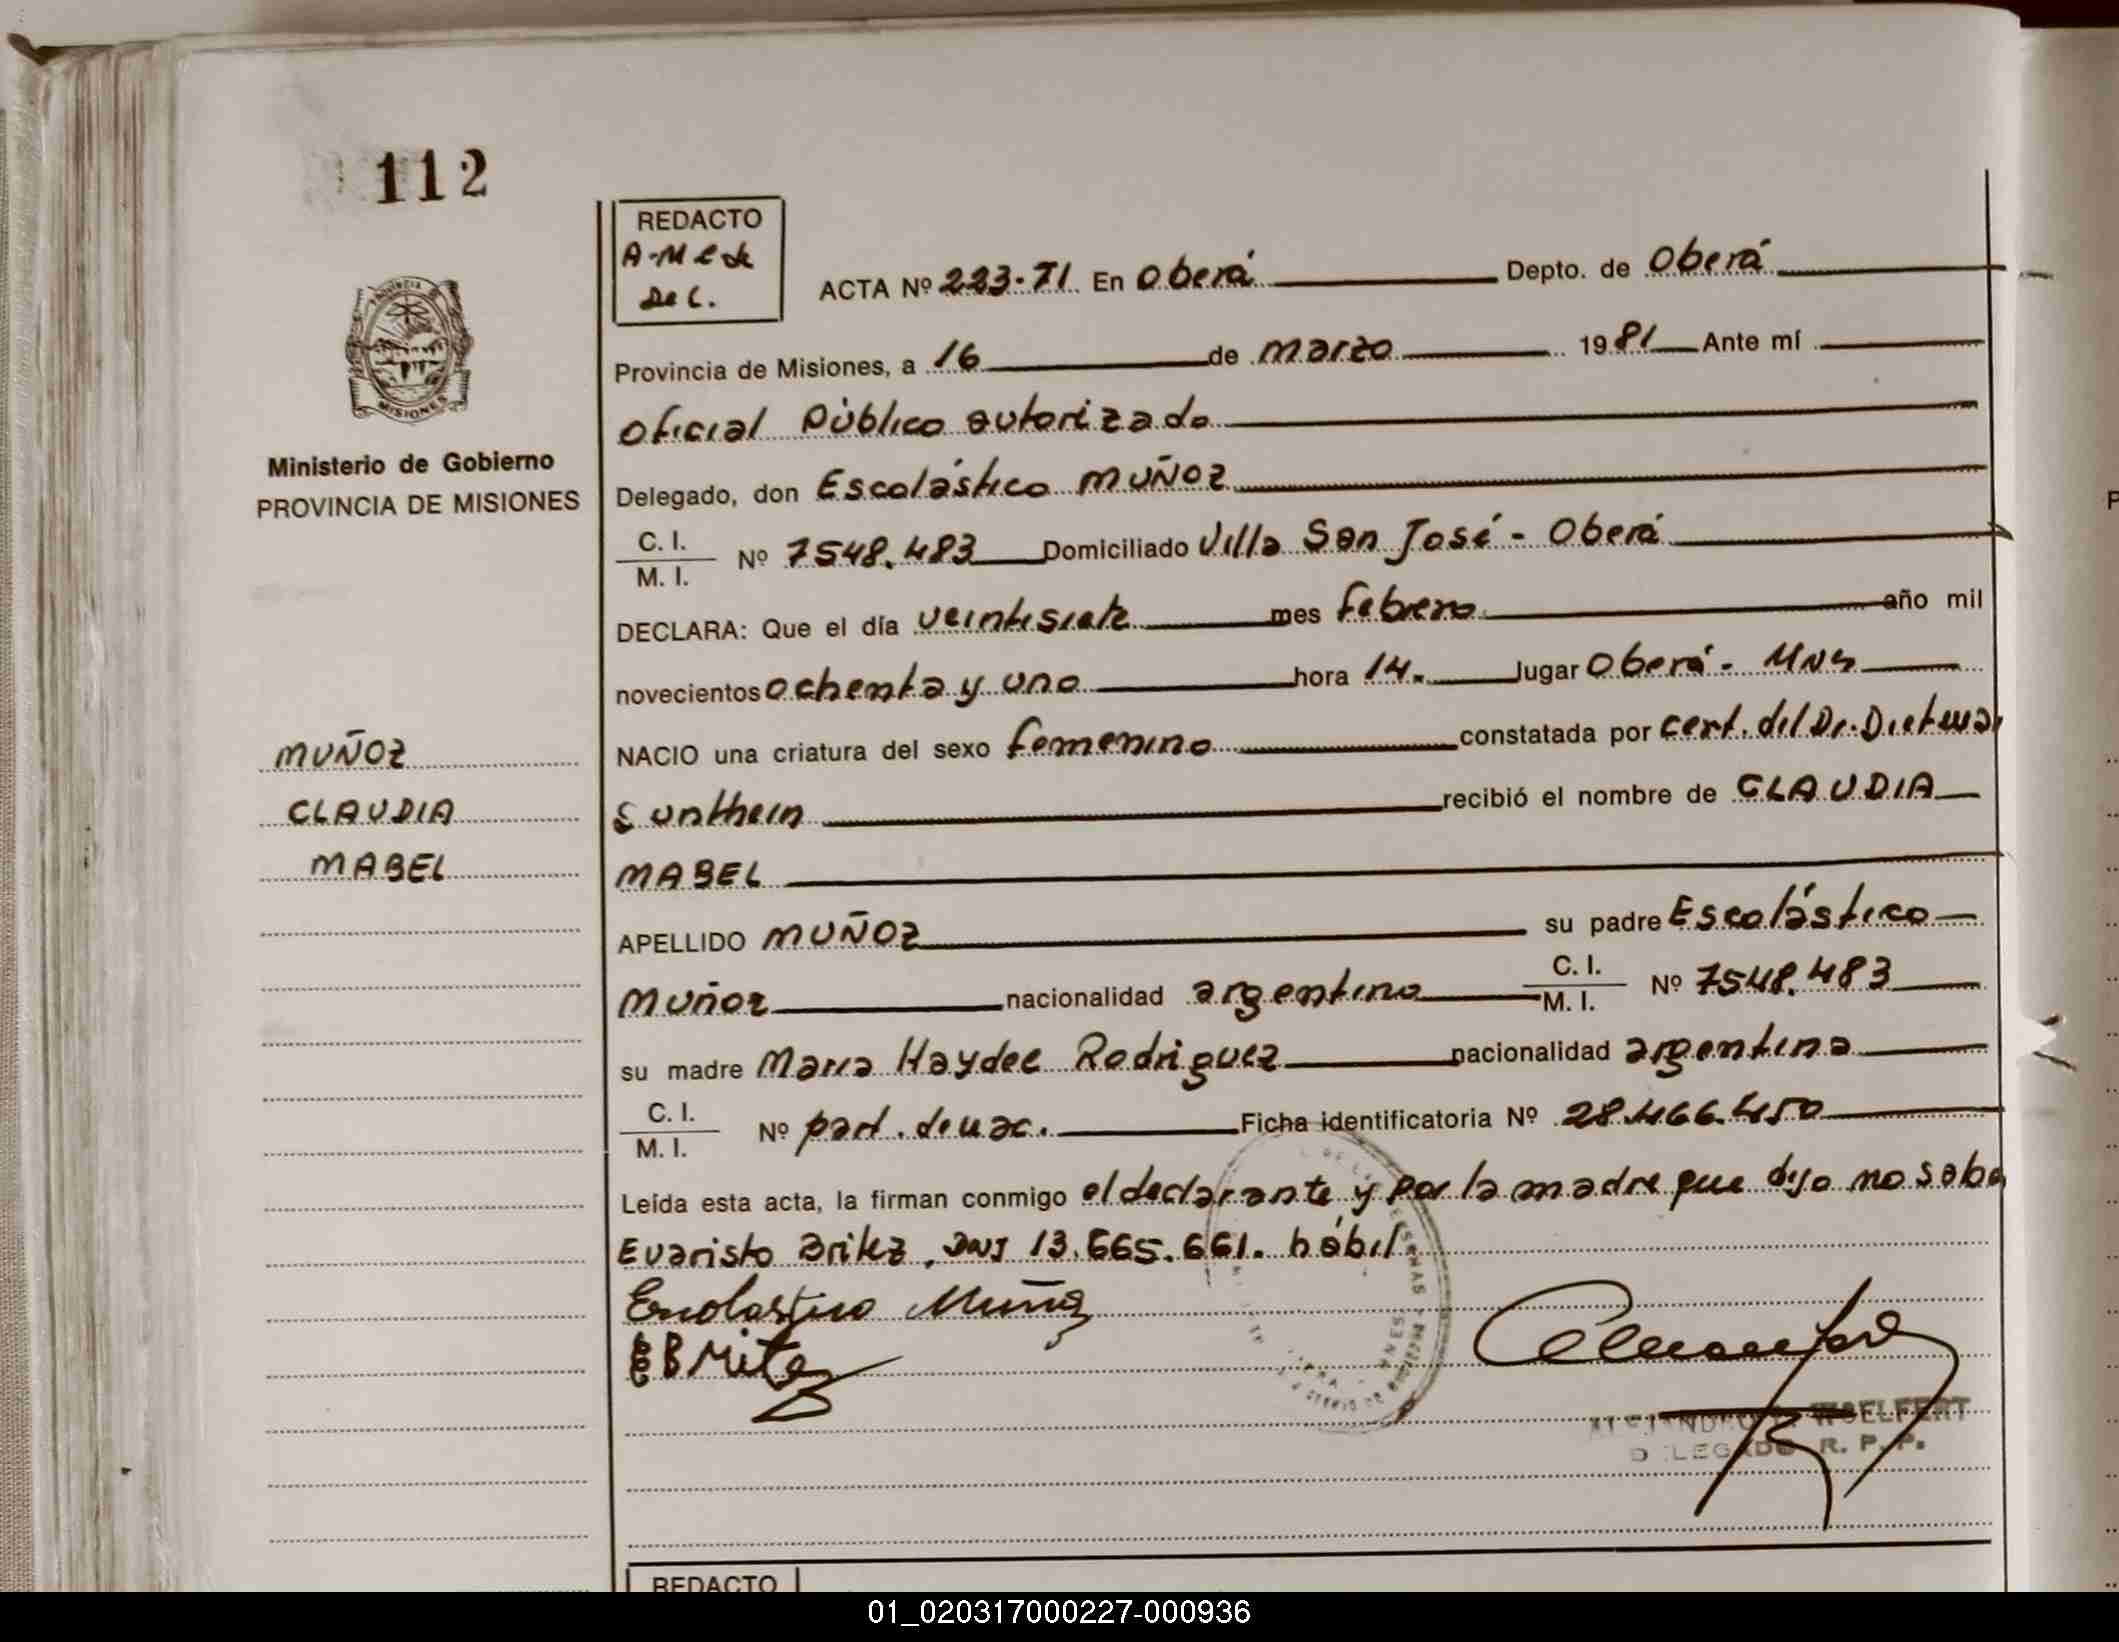 112
REDACTO
A-M C de
De C.
ACTA Nº 223-T1 En Oberá Depto. de Oberá
Provincia de Misiones, a 16 de marzo 1981 Ante mí
Oficial Público autorizado
Ministerio de Gobierno
PROVINCIA DE MISIONES
Delegado, don Escolástico MUÑOZ
C. I.
M. I.
Nº 7548.483 Domiciliado Villa San José - Oberá
DECLARA: Que el día veintisiete mes febrero año mil
novecientos ochenta y uno hora 14. lugar Oberá - Mns
MUÑOZ
CLAUDIA
MABEL
NACIO una criatura del sexo femenino constatada por cert. del Dr. Dietmar
Sunthein recibió el nombre de CLAUDIA
MABEL
APELLIDO MUÑOZ su padre Escolástico
Muñoz nacionalidad argentino C. I. M. I. Nº 7548.483
su madre Maria Haydee Rodriguez nacionalidad argentina
C. I.
M. I.
Nº part. de nac. Ficha identificatoria Nº 28.466.450
Leída esta acta, la firman conmigo el declarante y por la madre que dijo no sabe
Evaristo Britez, DNI 13.665.661. hábil
Escolastico Muñoz
WOELFERT
DELEGADO R. P. P.
REDACTO
01_020317000227-000936